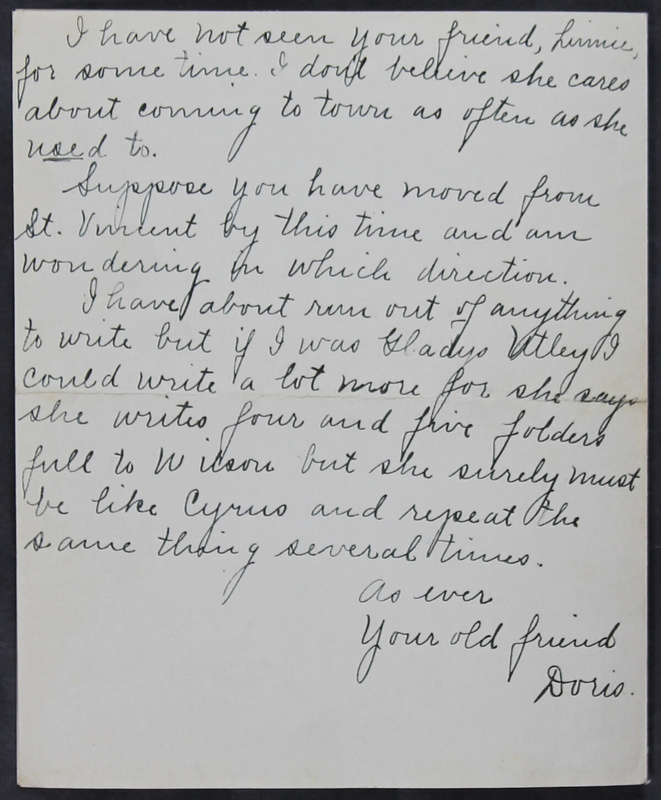 I have not seen your friend, Linnie,
for some time. I don't believe she cares
about coming to town as often as she
used to.
Suppose you have moved from
St. Vincent by this time and am
wondering in which direction.
I have about run out of anything
to write but if I was Gladys Utley I
could write a lot more for she says
she writes four and five folders
full to Wilson but she surely must
be like Cyrus and repeat the
same thing several times.
As ever
Your old friend
Doris.